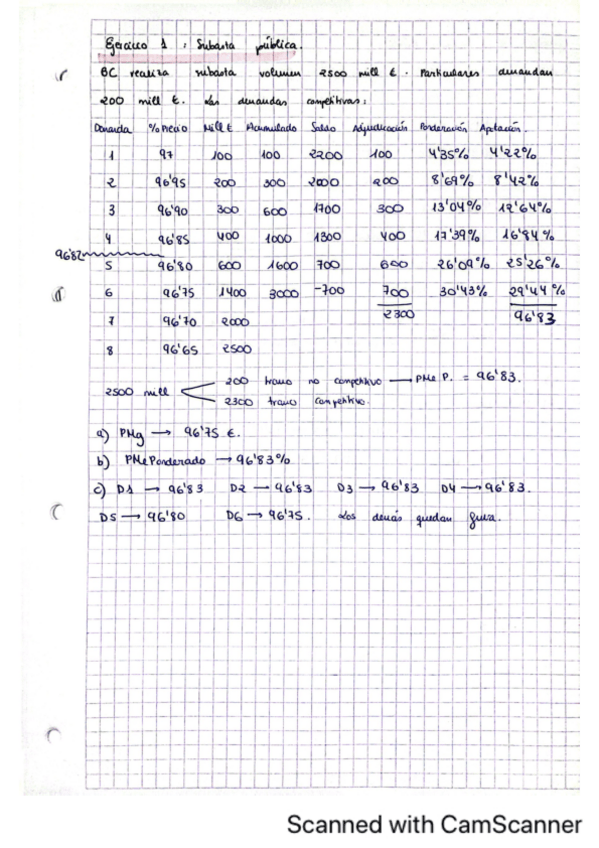 Ejercicio 1 : Subasta pública.
BC realiza subasta volumen 2500 mill €. Particulares demandan
200 mill €. Las demandas competitivas:
Demanda % Precio Mill € Acumulado Saldo Adjudicación Ponderación Aportación.
1 97 100 100 2200 100 4'35% 4'22%
2 96'95 200 300 2000 200 8'69% 8'42%
3 96'90 300 600 1700 300 13'04% 12'64%
4 96'85 400 1000 1300 400 17'39% 16'84%
96'82
5 96'80 600 1600 700 600 26'09% 25'26%
6 96'75 1400 3000 -700 700 30'43% 29'44%
7 96'70 2000 2300 96'83
8 96'65 2500
2500 mill 200 tramo no competitivo → PMe P. = 96'83.
2300 tramo competitivo.
a) PMg → 96'75 €.
b) PMe Ponderado → 96'83%
c) D1 → 96'83 D2 → 96'83 D3 → 96'83 D4 → 96'83.
D5 → 96'80 D6 → 96'75. Los demás quedan fuera.
Scanned with CamScanner